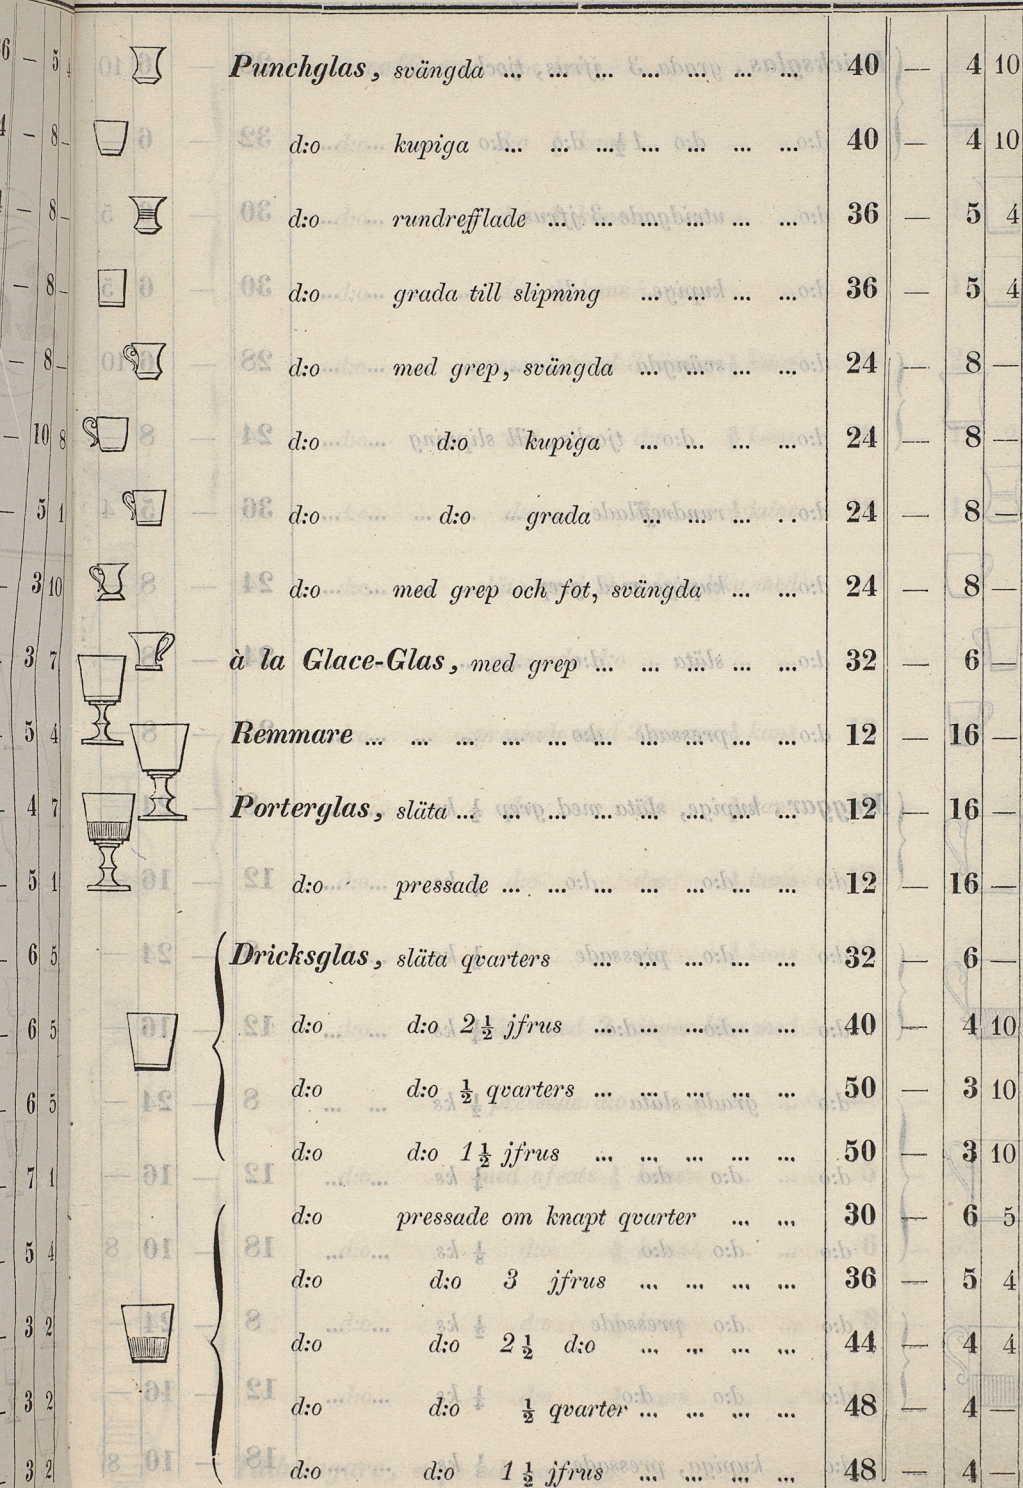 Punchglas, svängda ... ... ... ... ... ... ... 40 — 4 10
d:o kupiga ... ... ... ... ... ... ... 40 — 4 10
d:o rundrefflade ... ... ... ... ... ... 36 — 5 4
d:o grada till slipning ... ... ... ... 36 — 5 4
d:o med grep, svängda ... ... ... ... 24 — 8 —
d:o d:o kupiga ... ... ... ... 24 — 8 —
d:o d:o grada ... ... ... . . 24 — 8 —
d:o med grep och fot, svängda ... ... 24 — 8 —
à la Glace-Glas, med grep ... ... ... ... ... 32 — 6 —
Remmare ... ... ... ... ... ... ... ... ... ... 12 — 16 —
Porterglas, släta ... ... ... ... ... ... ... ... 12 — 16 —
d:o pressade ... ... ... ... ... ... ... 12 — 16 —
Dricksglas, släta qvarters ... ... ... ... ... 32 — 6 —
d:o d:o 2½ jfrus ... ... ... ... ... 40 — 4 10
d:o d:o ½ qvarters ... ... ... ... ... 50 — 3 10
d:o d:o 1½ jfrus ... ... ... ... ... 50 — 3 10
d:o pressade om knapt qvarter ... ... 30 — 6 5
d:o d:o 3 jfrus ... ... ... ... 36 — 5 4
d:o d:o 2½ d:o ... ... ... ... 44 — 4 4
d:o d:o ½ qvarter ... ... ... ... 48 — 4 —
d:o d:o 1½ jfrus ... ... ... ... 48 — 4 —